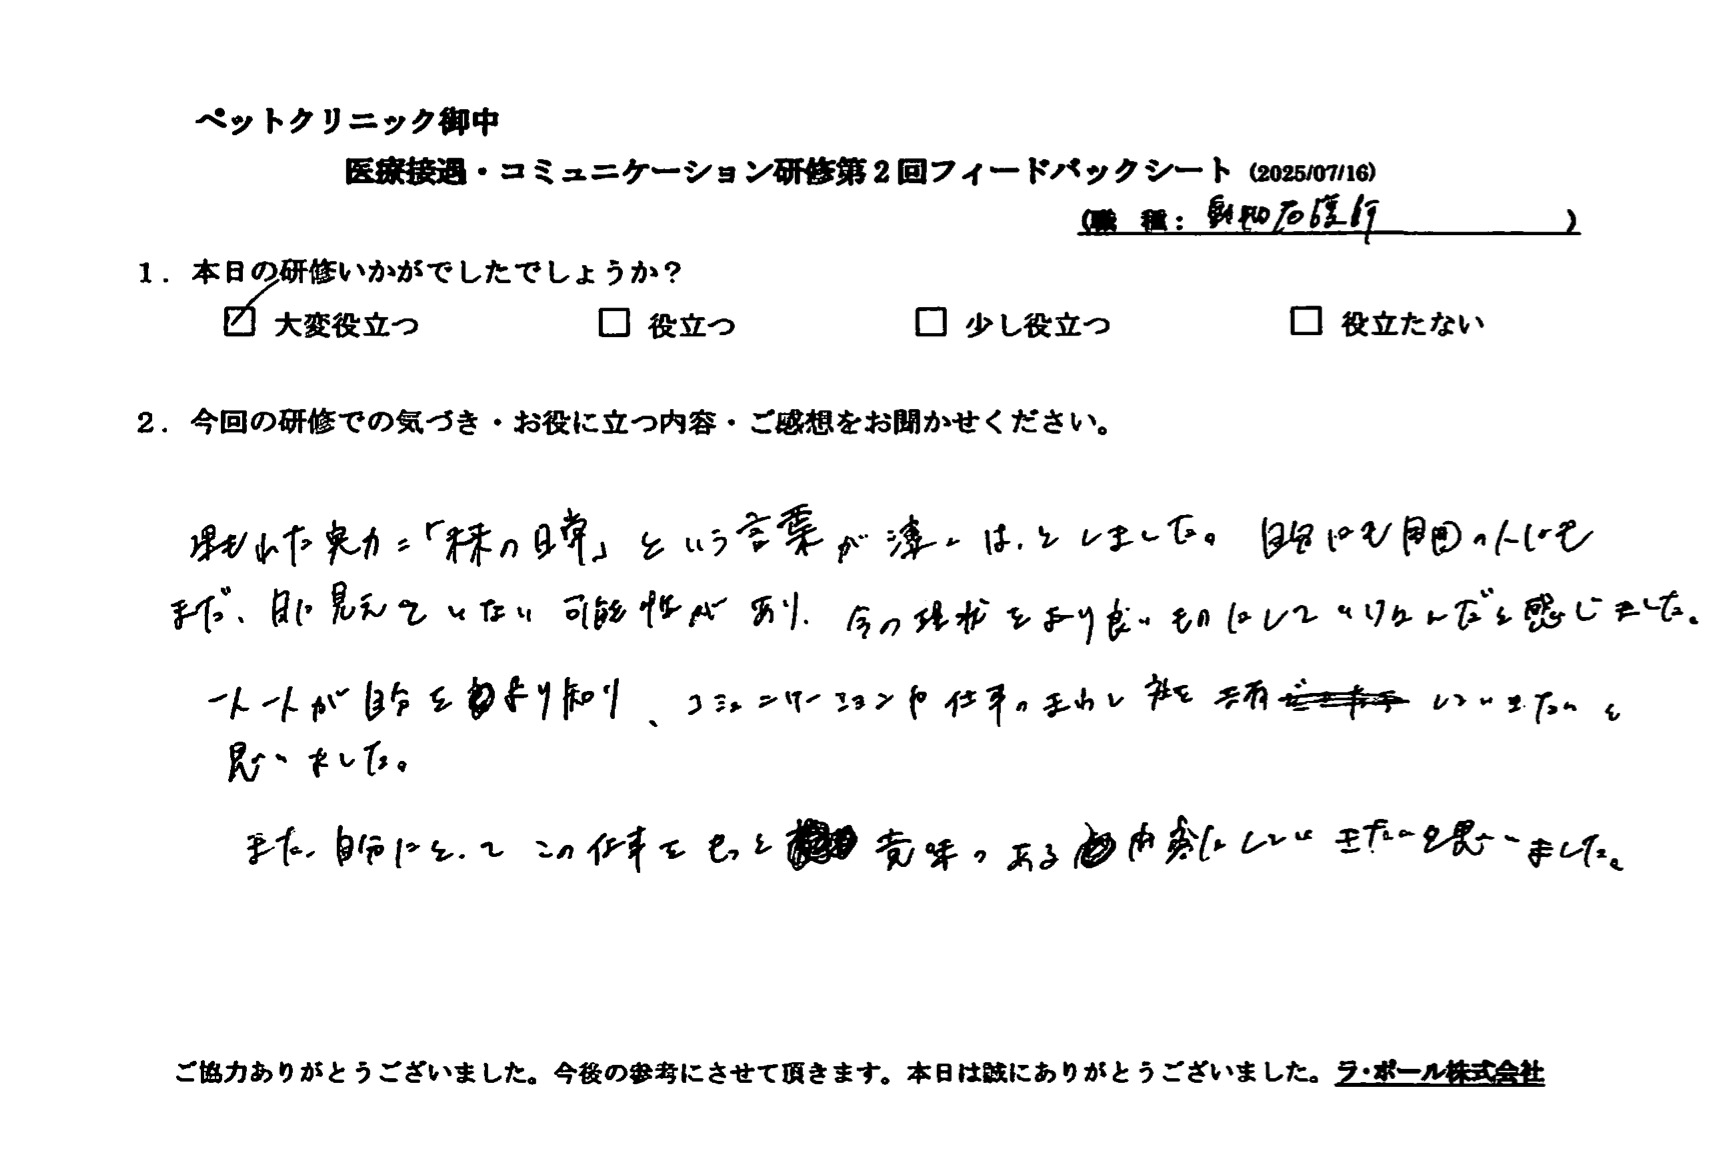 ペットクリニック御中
医療接遇・コミュニケーション研修第2回フィードバックシート (2025/07/16)
(職 種: 動物看護師 )
1. 本日の研修いかがでしたでしょうか?
☑ 大変役立つ □ 役立つ □ 少し役立つ □ 役立たない
2. 今回の研修での気づき・お役に立つ内容・ご感想をお聞かせください。
埋もれた実力=「未来の日常」という言葉が はっとしました。自分にも周囲の人にも
まだ、目に見えていない可能性があり、今の現状をより良いものにしていけるんだと感じました。
一人一人が自分をより知り、コミュニケーションや仕事の 共有 していきたいと
思いました。
また、自分にとってこの仕事をもっと意味のある内容にしていきたいと思いました。
ご協力ありがとうございました。今後の参考にさせて頂きます。本日は誠にありがとうございました。ラ・ポール株式会社